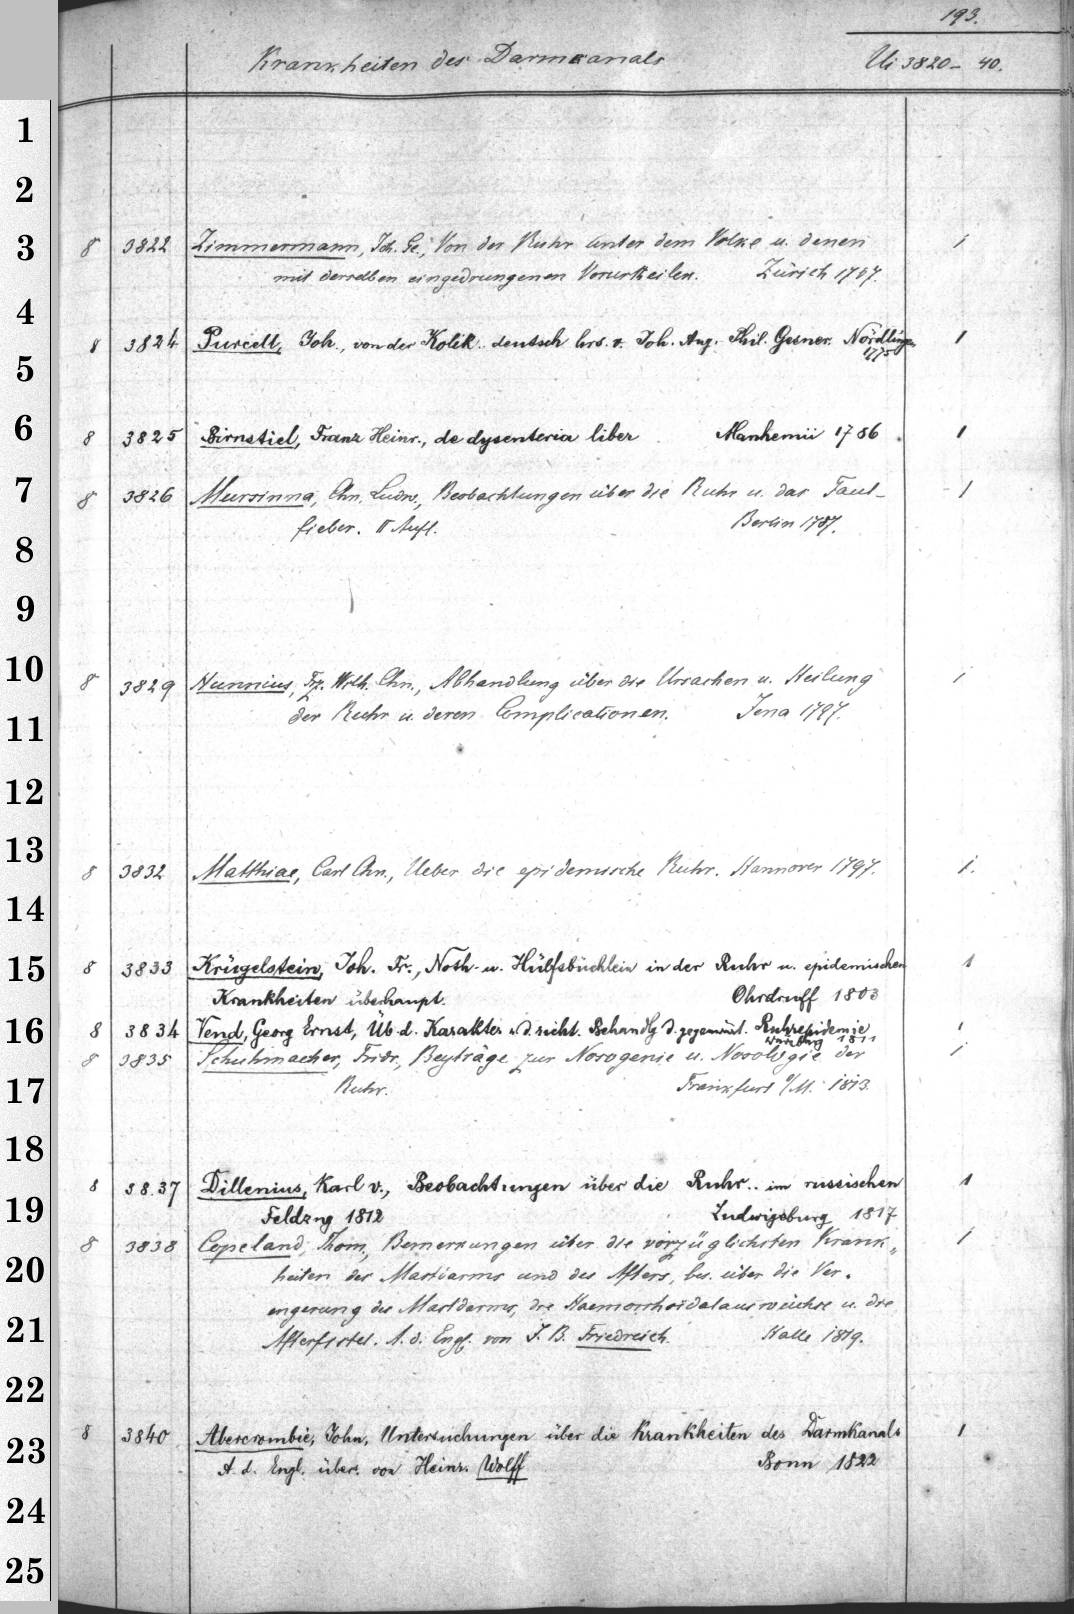 193.
Krankheiten des Darmkanals Ui 3820-40.
1
2
3
8 3822 Zimmermann, Joh. Ge., Von der Ruhr unter dem Volke u. denen 1
mit derselben eingedrungenen Vorurtheilen. Zürich 1767.
4
8 3824 Purcell, Joh., von der Kolik. deutsch hrs. v. Joh. Aug. Phil. Gesner. Nördlingen 1
1775
5
6
8 3825 Birnstiel, Franz Heinr., de dysenteria liber Manhemii 1786 1
7
8 3826 Mursinna, Chn. Ludw., Beobachtungen über die Ruhr u. das Faul- 1
fieber. II Aufl. Berlin 1787.
8
9
10
8 3829 Hunnius, Frz. Wilh. Chn., Abhandlung über die Ursachen u. Heilung 1
der Ruhr u. deren Complicationen. Jena 1797.
11
12
13
8 3832 Matthiae, Carl Chn., Ueber die epidemische Ruhr. Hannover 1797. 1.
14
15
8 3833 Krügelstein, Joh. Fr., Noth- u. Hülfsbüchlein in der Ruhr u. epidemischen 1
Krankheiten überhaupt. Ohrdruff 1803
16
8 3834 Vend, Georg Ernst, Üb. d. Karakter u. d. richt. Behandlg d. gegenwärt. Ruhrepidemie 1
Würzburg 1811
8 3835 Schuhmacher, Fridr., Beyträge zur Nosogenie u. Nosologie der 1
Ruhr. Frankfurt a/M. 1813.
17
18
8 3837 Dillenius, Karl v., Beobachtungen über die Ruhr.. im russischen 1
Feldzug 1812 Ludwigsburg 1817
19
8 3838 Copeland, Thom., Bemerkungen über die vorzüglichsten Krank- 1
heiten des Mastdarms und des Afters, bes. über die Ver-
20
engerung des Mastdarms, die Haemorrhoidalauswüchse u. die
Afterfistel. A. d. Engl. von J. B. Friedreich. Halle 1819.
21
22
8 3840 Abercrombie, John, Untersuchungen über die Krankheiten des Darmkanals 1
A. d. Engl. übers. von Heinr. Wolff Bonn 1822
23
24
25